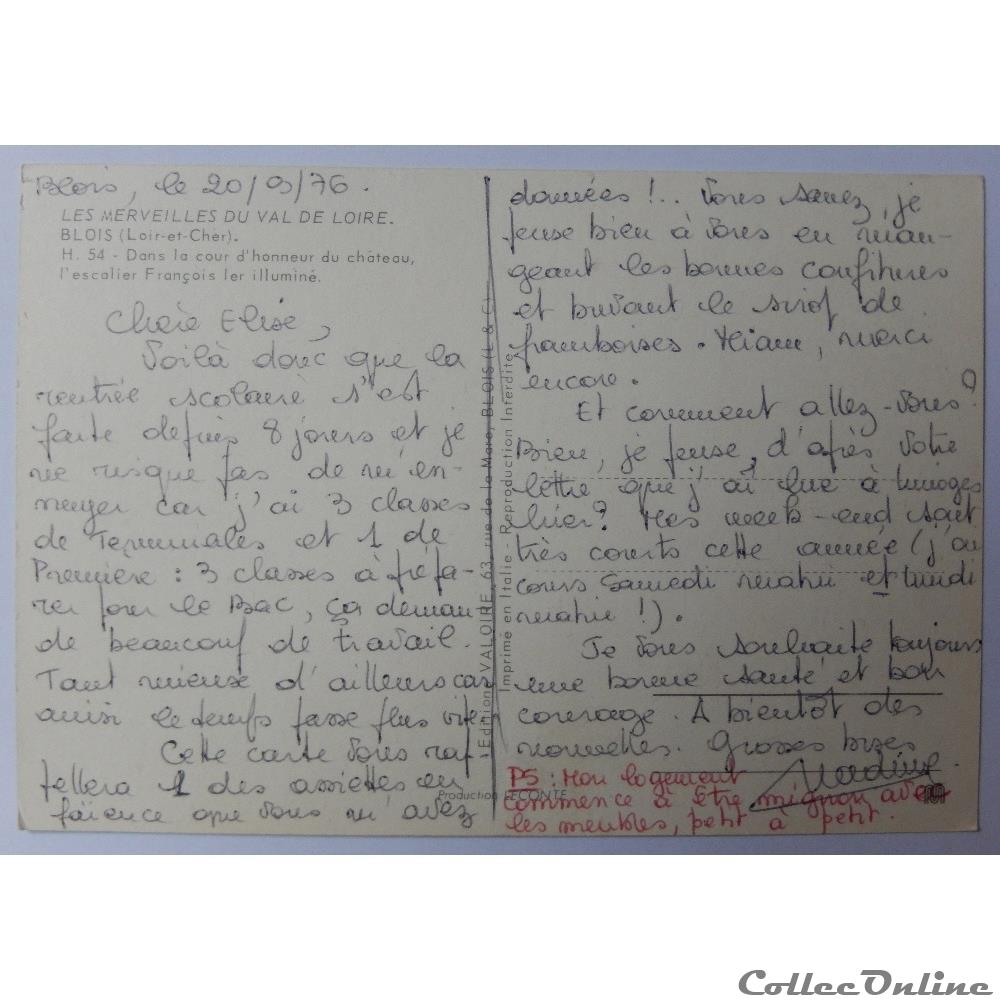 Blois, le 20/9/76.
LES MERVEILLES DU VAL DE LOIRE.
BLOIS (Loir-et-Cher).
H. 54 - Dans la cour d'honneur du château,
l'escalier François Ier illuminé.
Chère Elise,
Voilà donc que la
rentrée scolaire s'est
faite depuis 8 jours et je
ne risque pas de m'en-
nuyer car j'ai 3 classes
de Terminales et 1 de
Première : 3 classes à prépa-
rer pour le Bac, ça deman-
de beaucoup de travail.
Tant mieux d'ailleurs car
ainsi le temps passe plus vite.
Cette carte vous rap-
pellera 1 des assiettes en
faïence que vous m'avez
Editions VALOIRE, 63, rue de la Mare, BLOIS (L & C)
Imprimé en Italie - Reproduction Interdite
Production LECONTE
données !.. Vous savez, je
pense bien à vous en man-
geant les bonnes confitures
et buvant le sirop de
framboises. Miam, merci
encore.
Et comment allez-vous ?
Bien, je pense, d'après votre
lettre que j'ai lue à Limoges
hier ? Mes week-end sont
très courts cette année (j'ai
cours Samedi matin et lundi
matin !).
Je vous souhaite toujours
une bonne santé et bon
courage. A bientôt des
nouvelles. Grosses bises
Nadine
PS : Mon logement
commence à être mignon avec
les meubles, petit à petit.
CollecOnline